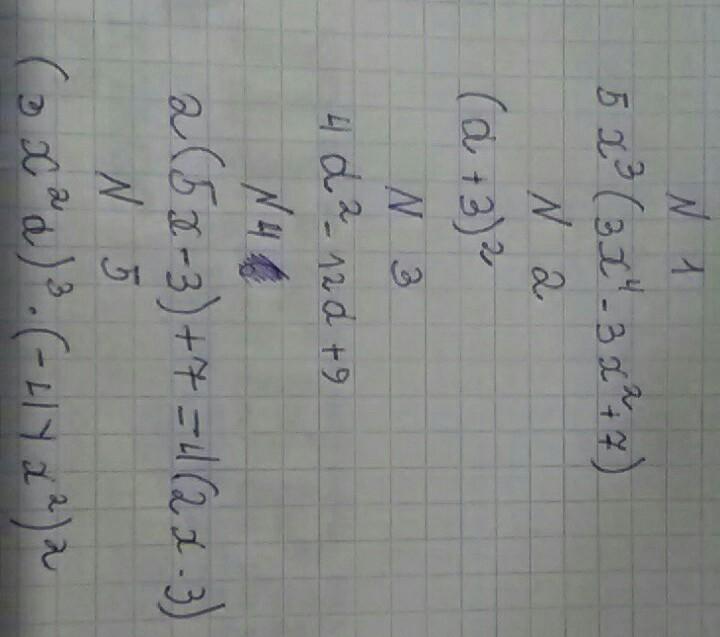 N 1
5x³(3x⁴-3x²+7)
N 2
(a+3)²
N 3
4a²-12a+9
N4
2(5x-3)+7=4(2x-3)
N 5
x²a)³·(-